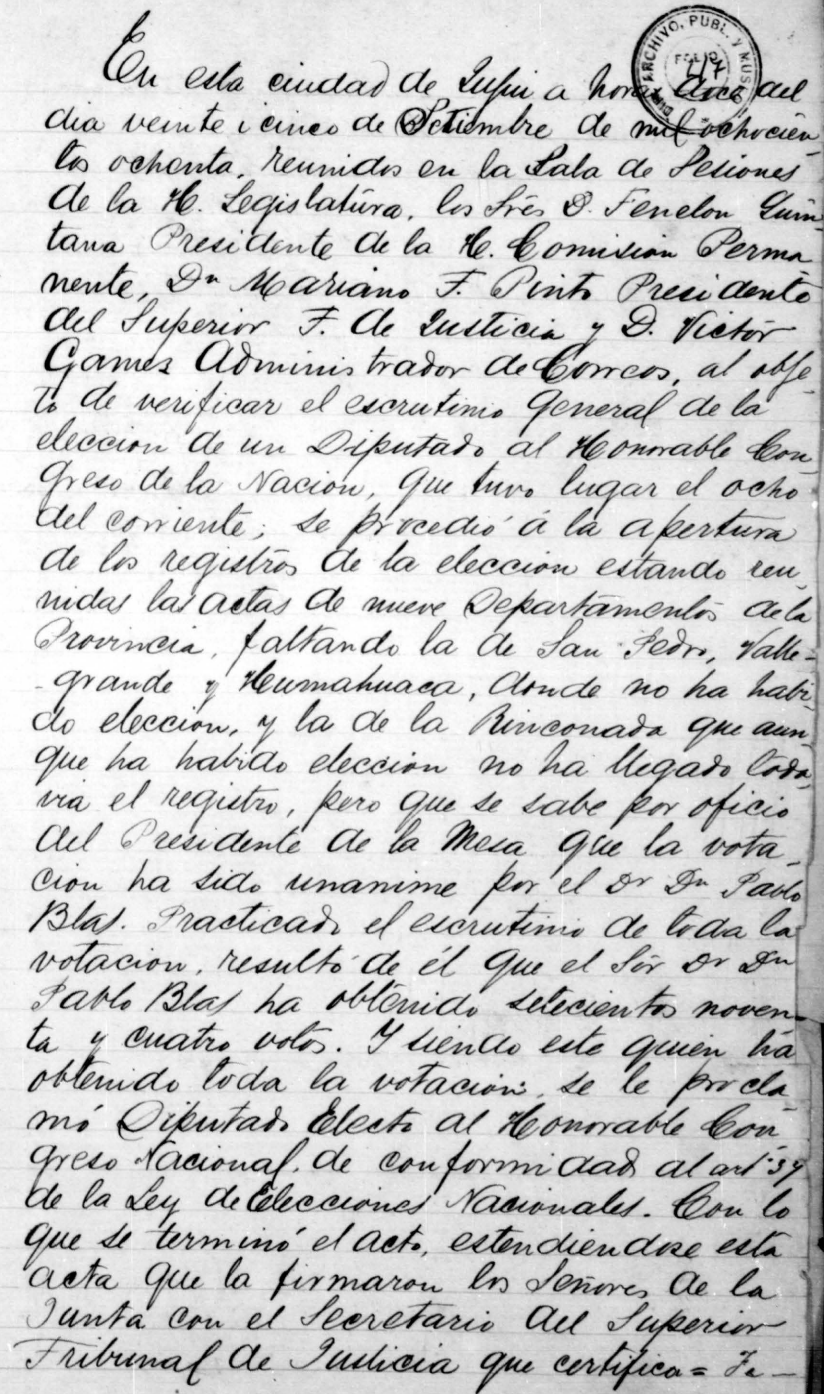 ARCHIVO, PUBL. Y MUSEO
47
En esta ciudad de Jujui a horas doce del
dia veinte i cinco de Setiembre de mil ochocien-
tos ochenta, reunidos en la Sala de Sesiones
de la H. Legislatura, los Sres D. Fenelon Quin-
tana Presidente de la H. Comision Perma-
nente, Dn Mariano F. Pinto Presidente
del Superior T. de Justicia y D. Victor
Gamez Administrador de Correos, al obje-
to de verificar el escrutinio General de la
eleccion de un Diputado al Honorable Con-
greso de la Nacion, que tuvo lugar el ocho
del corriente; se procedió á la apertura
de los registros de la eleccion estando reu-
nidas las actas de nueve Departamentos de la
Provincia, faltando la de San Pedro, Valle-
-grande y Humahuaca, donde no ha habi-
do eleccion, y la de la Rinconada que aun-
que ha habido eleccion no ha llegado toda-
via el registro, pero que se sabe por oficio
del Presidente de la Mesa que la vota-
cion ha sido unanime por el Dr Dn Pablo
Blas. Practicado el escrutinio de toda la
votacion, resultó de él que el Sór Dr Dn
Pablo Blas ha obtenido setecientos noven-
ta y cuatro votos. I siendo este quien ha
obtenido toda la votacion, se le procla-
mó Diputado Electo al Honorable Con-
greso Nacional, de conformidad al art 39
de la Ley de Elecciones Nacionales. Con lo
que se terminó el acto, estendiendose esta
acta que la firmaron los Señores de la
Junta con el Secretario del Superior
Tribunal de Justicia que certifica = Fe-